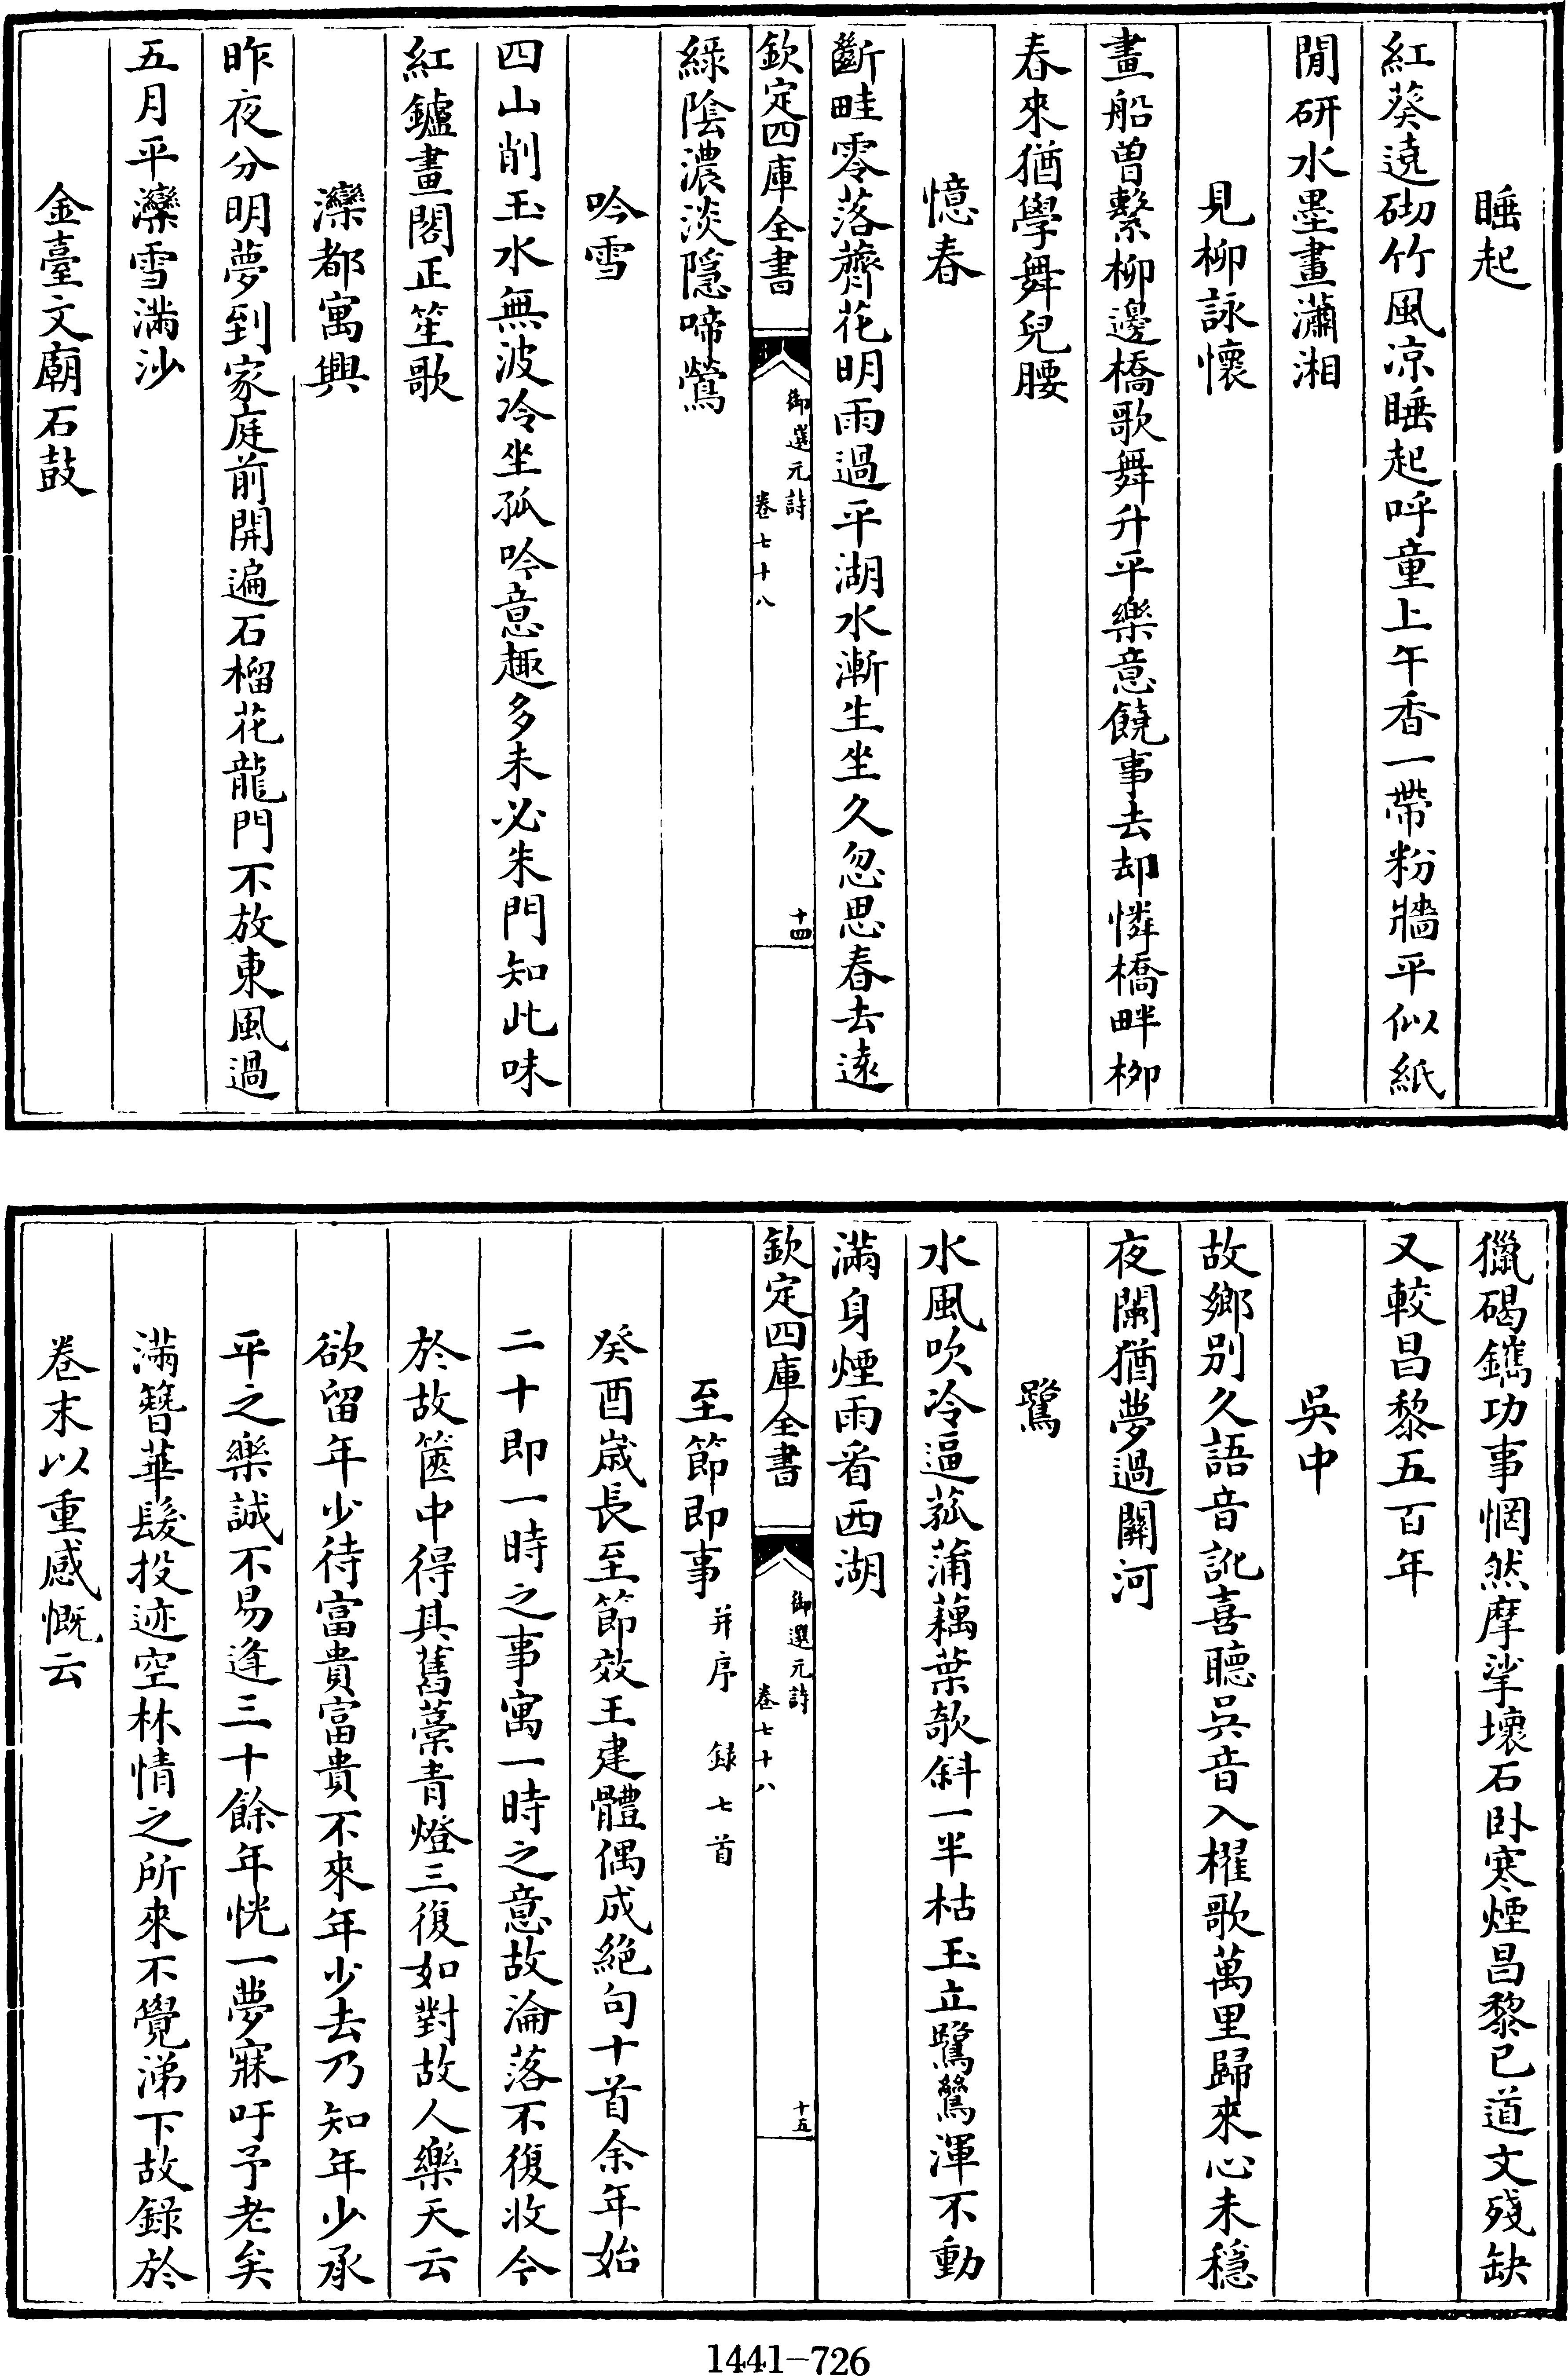 睡起
紅葵遶砌竹風凉睡起呼童上午香一帶粉牆平似紙
閒研水墨畫瀟湘
見柳詠懷
畫船曽繫柳邊橋歌舞升平樂意饒事去却憐橋畔柳
春來猶學舞兒腰
憶春
斷畦零落薺花明雨過平湖水漸生坐久忽思春去遠
欽定四庫全書
御選元詩
卷七十八
十四
綠陰濃淡隱啼鶯
吟雪
四山削玉水無波冷坐孤吟意趣多未必朱門知此味
紅鑪畫閣正笙歌
灤都寓興
昨夜分明夢到家庭前開遍石榴花龍門不放東風過
五月平灤雪滿沙
金臺文廟石鼓
獵碣鐫功事惘然摩挲壞石卧寒煙昌黎已道文殘缺
又較昌黎五百年
吳中
故鄉别久語音訛喜聽吳音入櫂歌萬里歸來心未穩
夜闌猶夢過關河
鷺
水風吹冷逼菰蒲藕葉欹斜一半枯玉立鷺鷥渾不動
滿身煙雨看西湖
欽定四庫全書
御選元詩
卷七十八
十五
至節即事并序 録七首
癸酉嵗長至節效王建體偶成絕句十首余年始
二十即一時之事寓一時之意故淪落不復收今
於故篋中得其舊藁青燈三復如對故人樂天云
欲留年少待富貴富貴不來年少去乃知年少承
平之樂誠不易逢三十餘年恍一夢寐吁予老矣
滿簪華髮投迹空林情之所來不覺涕下故録於
卷末以重感慨云
1441-726